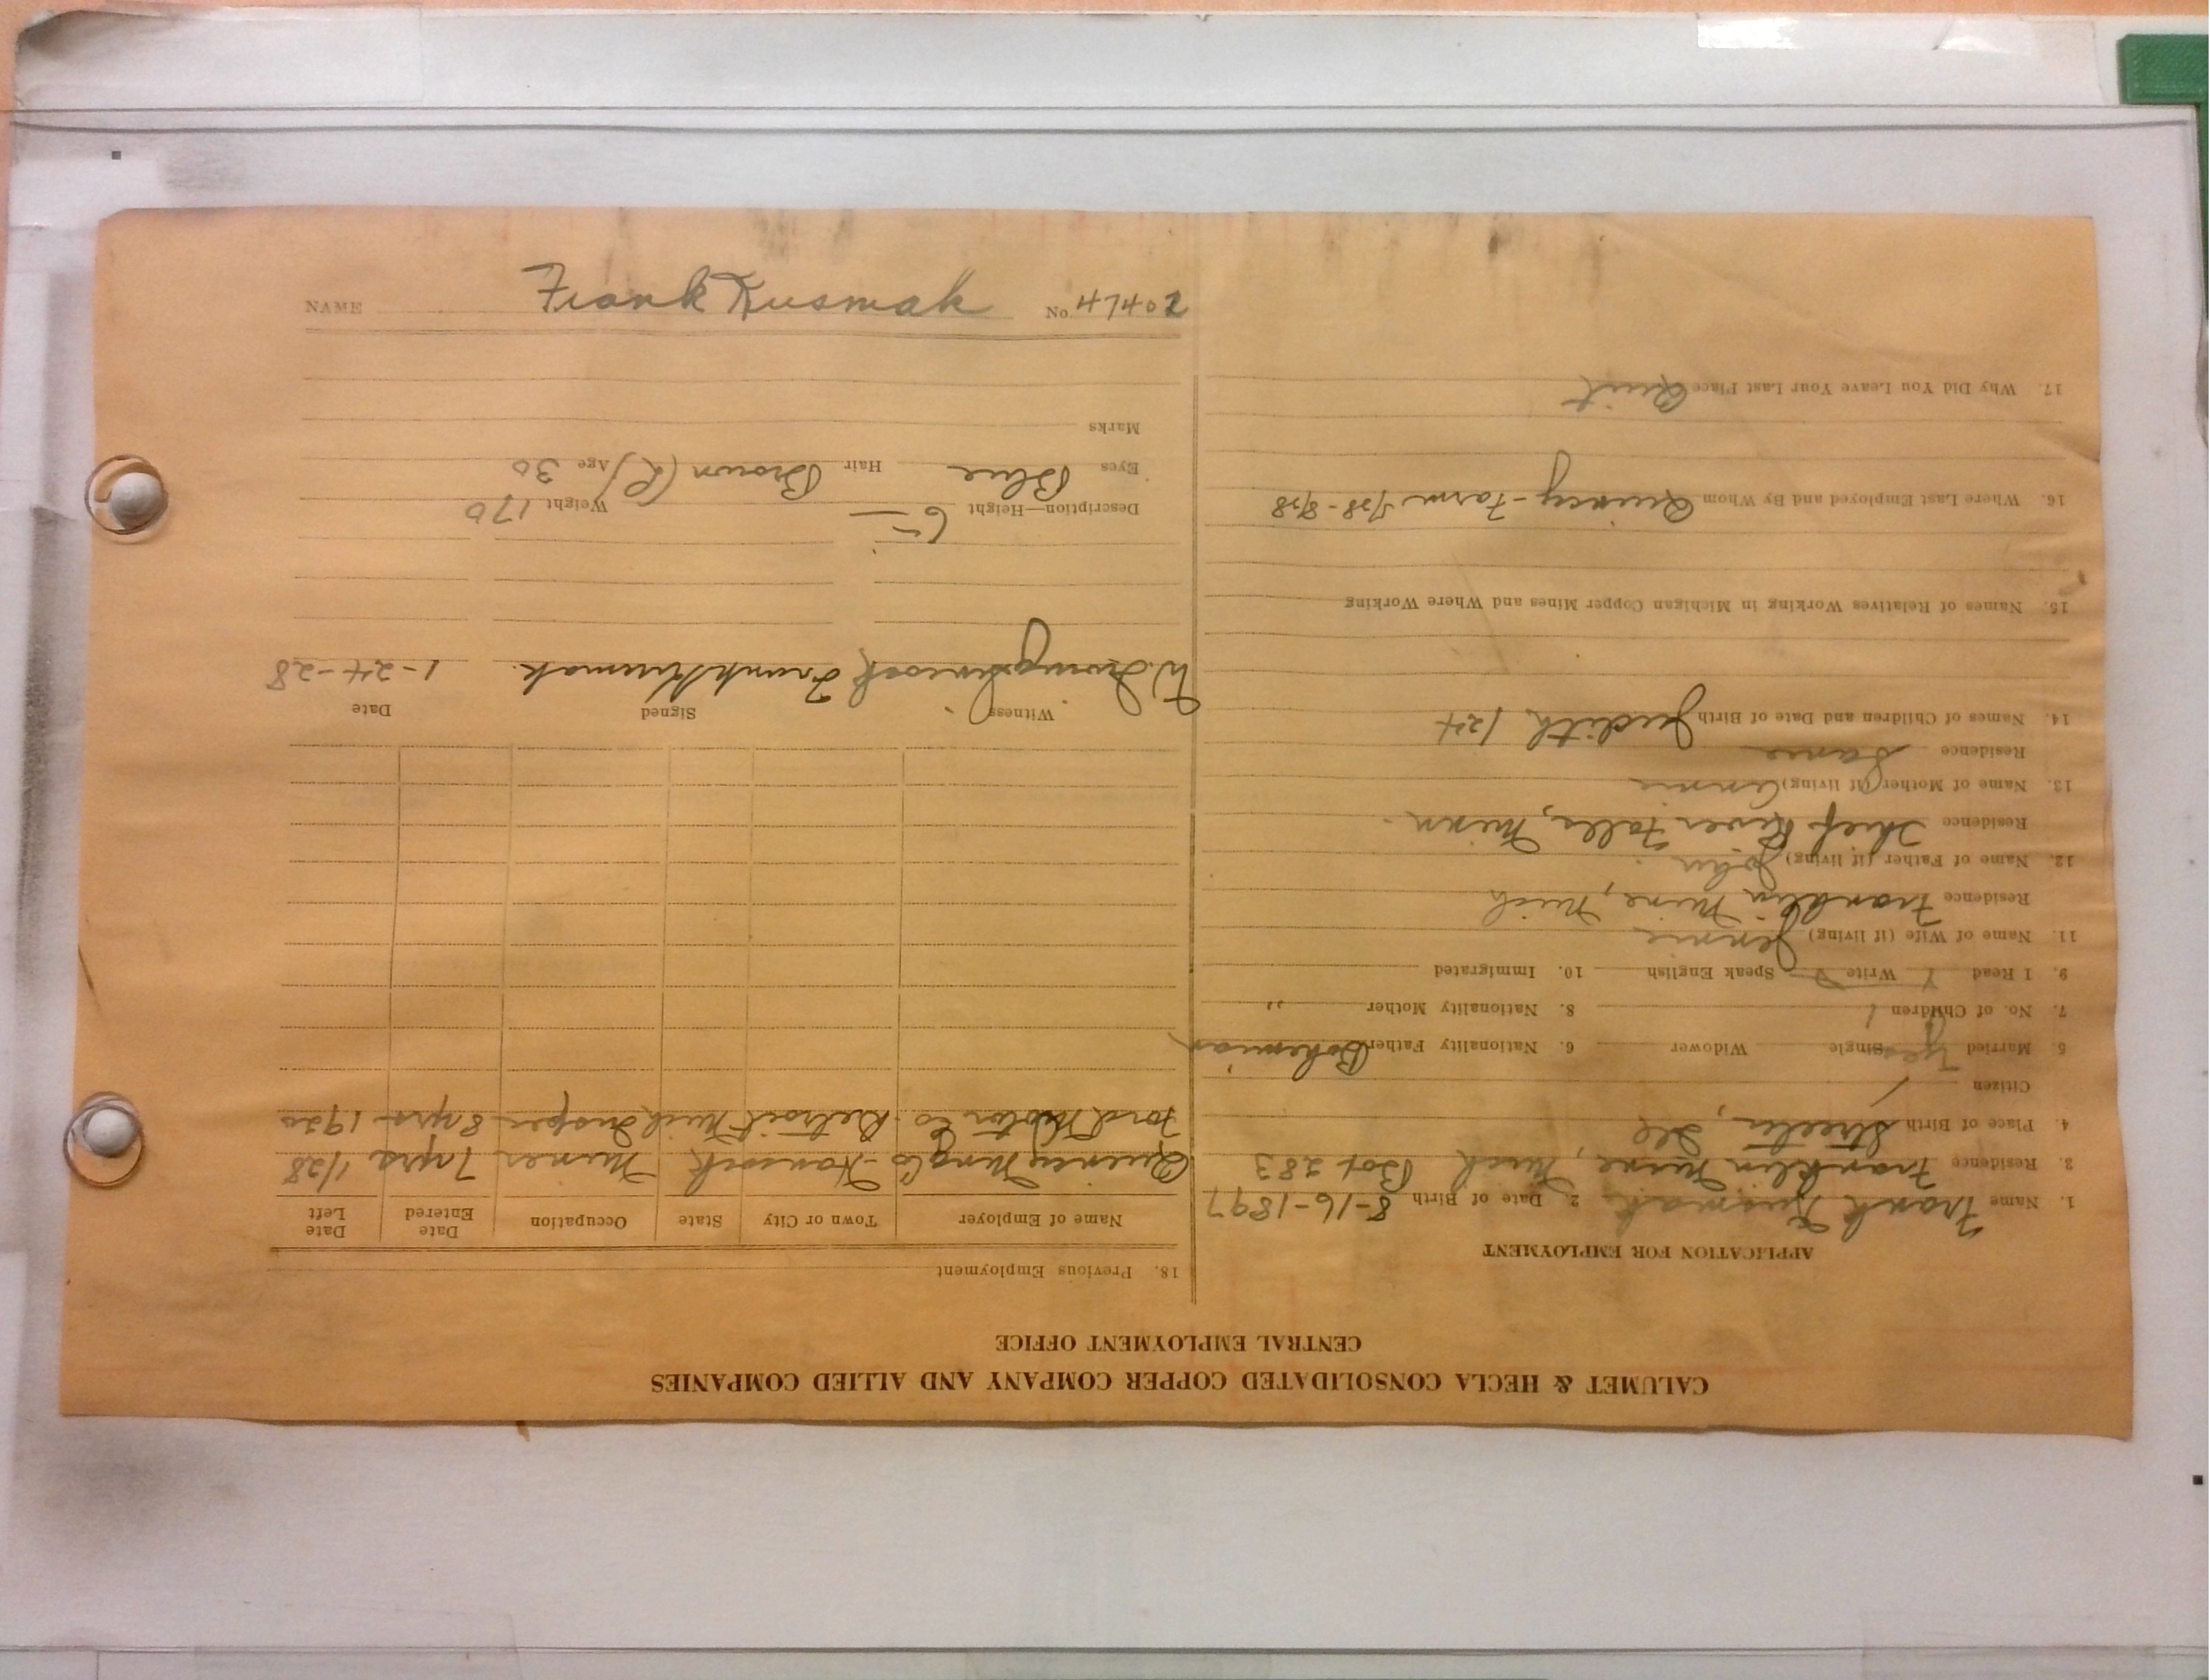 CALUMET & HECLA CONSOLIDATED COPPER COMPANY AND ALLIED COMPANIES
CENTRAL EMPLOYMENT OFFICE
APPLICATION FOR EMPLOYMENT
1. Name Frank Kusmak 2. Date of Birth 8-16-1897
3. Residence Franklin Mine, Mich Box 283
4. Place of Birth Streeter, Ill
Citizen /
5. Married Yes Single Widower 6. Nationality Father Bohemian
7. No. of Children 1 8. Nationality Mother "
9. I Read Write Speak English 10. Immigrated
11. Name of Wife (if living) Jennie
Residence Franklin Mine, Mich
12. Name of Father (if living) John
Residence Thief River Falls, Minn.
13. Name of Mother (if living) Annie
Residence Same
14. Names of Children and Date of Birth Judith 1924
15. Names of Relatives Working in Michigan Copper Mines and Where Working
16. Where Last Employed and By Whom Quincy-Farm
17. Why Did You Leave Your Last Place Quit
18. Previous Employment
Name of Employer Town or City State Occupation Date Entered Date Left
Quincy Mng Co Hancock Miner 7 yrs 1/28
Ford Motor Co. Detroit Mich Inspec 8 yrs 1920
Witness Signed Date
W. Frank Kusmak 1-24-28
Description—Height 6 — Weight 170
Eyes Blue Hair Brown (L) Age 30
Marks
NAME Frank Kusmak No. 47402